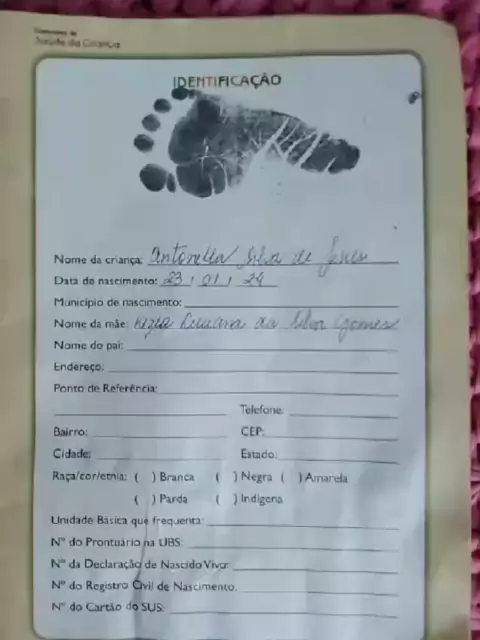 Saúde da Criança
IDENTIFICAÇÃO
Nome da criança: Antonella Silva de
Data de nascimento: 23 / 01 / 24
Município de nascimento:
Nome da mãe: da Silva Gomes
Nome do pai:
Endereço:
Ponto de Referência:
Telefone:
Bairro: CEP:
Cidade: Estado:
Raça/cor/etnia: ( ) Branca ( ) Negra ( ) Amarela
( ) Parda ( ) Indígena
Unidade Básica que frequenta:
Nº do Prontuário na UBS:
Nº da Declaração de Nascido Vivo:
Nº do Registro Civil de Nascimento:
Nº do Cartão do SUS: